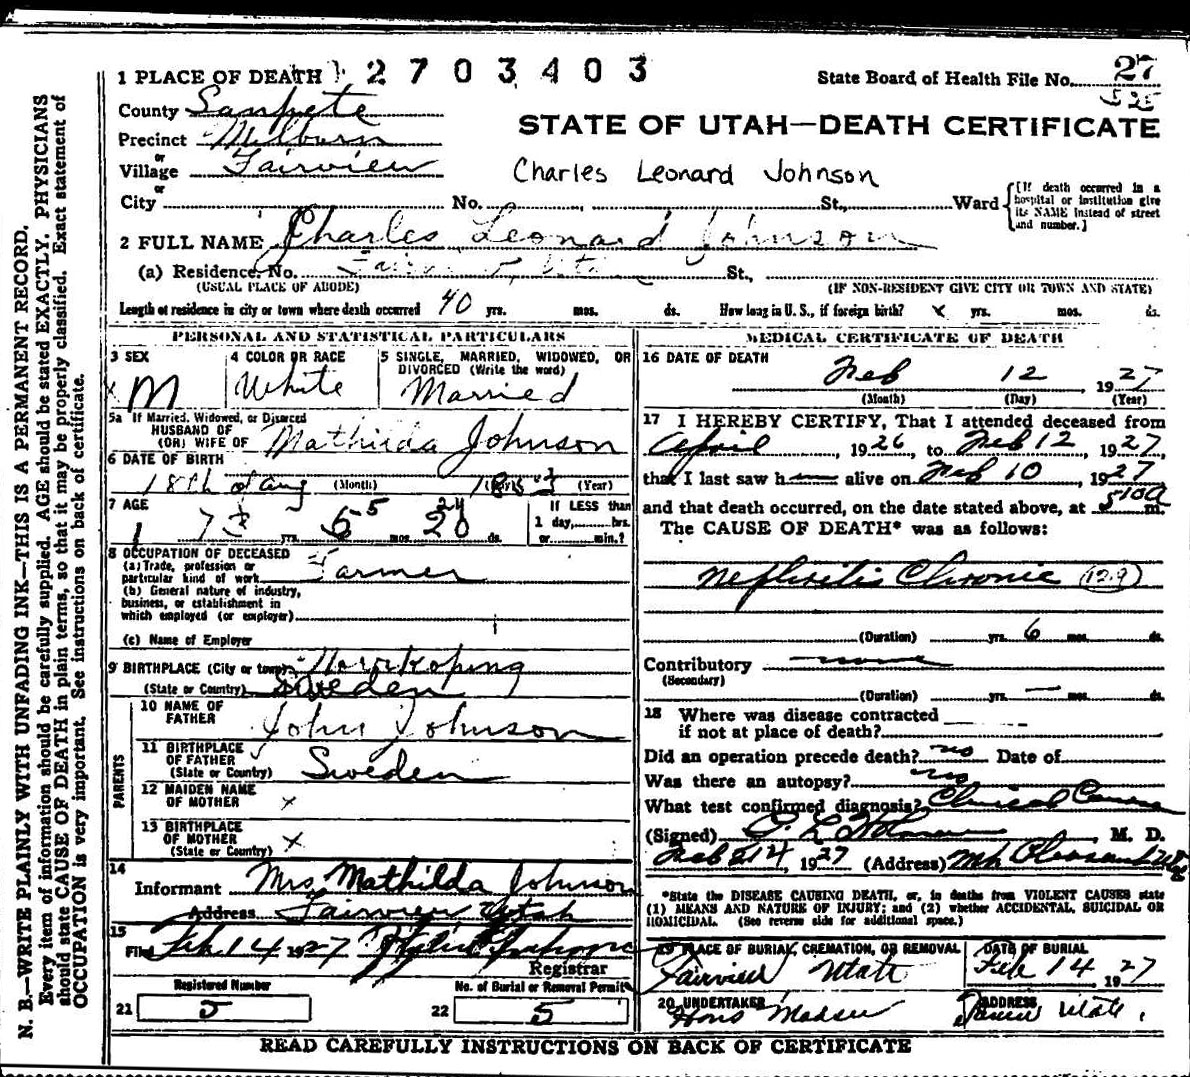 N. B.—WRITE PLAINLY WITH UNFADING INK—THIS IS A PERMANENT RECORD.
Every item of information should be carefully supplied. AGE should be stated EXACTLY. PHYSICIANS
should state CAUSE OF DEATH in plain terms, so that it may be properly classified. Exact statement of
OCCUPATION is very important. See instructions on back of certificate.
1 PLACE OF DEATH 2 7 0 3 4 0 3
State Board of Health File No. 27
525
County Sanpete
Precinct Milburn
STATE OF UTAH—DEATH CERTIFICATE
or
Village Fairview
Charles Leonard Johnson
or
City No. St., Ward
[If death occurred in a
hospital or institution give
its NAME instead of street
and number.]
2 FULL NAME Charles Leonard Johnson
(a) Residence. No. St.,
(USUAL PLACE OF ABODE) (IF NON-RESIDENT GIVE CITY OR TOWN AND STATE)
Length of residence in city or town where death occurred 40 yrs. mos. ds. How long in U. S., if foreign birth? x yrs. mos. ds.
PERSONAL AND STATISTICAL PARTICULARS
3 SEX
M
4 COLOR OR RACE
White
5 SINGLE, MARRIED, WIDOWED, OR
DIVORCED (Write the word)
Married
5a If Married, Widowed, or Divorced
HUSBAND OF
(OR) WIFE OF Mathilda Johnson
6 DATE OF BIRTH
18th (Month) (Year)
7 AGE
yrs. mos. ds.
If LESS than
1 day, hrs.
or min.?
8 OCCUPATION OF DECEASED
(a) Trade, profession or
particular kind of work Farmer
(b) General nature of industry,
business, or establishment in
which employed (or employer)
(c) Name of Employer
9 BIRTHPLACE (City or town) Norrkoping
(State or Country) Sweden
PARENTS
10 NAME OF
FATHER John Johnson
11 BIRTHPLACE
OF FATHER
(State or Country) Sweden
12 MAIDEN NAME
OF MOTHER x
13 BIRTHPLACE
OF MOTHER x
(State or Country)
14
Informant Mrs Mathilda Johnson
Address Fairview Utah
15
Filed Feb 14 1927
Registrar
Registered Number
21 5
No. of Burial or Removal Permit
22 5
MEDICAL CERTIFICATE OF DEATH
16 DATE OF DEATH
Feb 12 1927
(Month) (Day) (Year)
17 I HEREBY CERTIFY, That I attended deceased from
April, 1926, to Feb 12, 1927,
that I last saw h alive on Feb 10, 1927
and that death occurred, on the date stated above, at 510a m.
The CAUSE OF DEATH* was as follows:
Nephritis Chronic 129
(Duration) yrs. 6 mos. ds.
Contributory none
(Secondary)
(Duration) yrs. mos. ds.
18 Where was disease contracted
if not at place of death?
Did an operation precede death? no Date of
Was there an autopsy? no
What test confirmed diagnosis? Clinical
(Signed) M. D.
Feb 14, 1927 (Address) Mt Pleasant
*State the DISEASE CAUSING DEATH, or, in deaths from VIOLENT CAUSES state
(1) MEANS AND NATURE OF INJURY; and (2) whether ACCIDENTAL, SUICIDAL OR
HOMICIDAL. (See reverse side for additional space.)
19 PLACE OF BURIAL, CREMATION, OR REMOVAL
Fairview Utah
DATE OF BURIAL
Feb 14 1927
20 UNDERTAKER
Madsen
ADDRESS
Utah.
READ CAREFULLY INSTRUCTIONS ON BACK OF CERTIFICATE